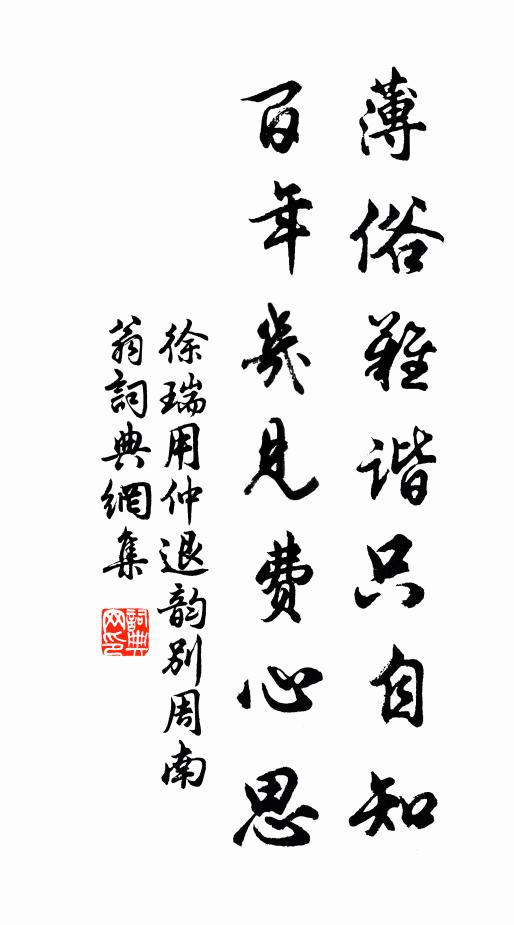 薄俗難谐只自知
百年幾見费心思
徐瑞用仲退韵别周南
翁詞典網集
詞典
网印